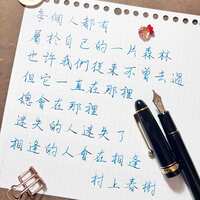 每個人都有
屬於自己的一片森林
也許我們從來不曾去過
但它一直在那裡
總會在那裡
迷失的人迷失了
相逢的人會在相逢
村上春樹